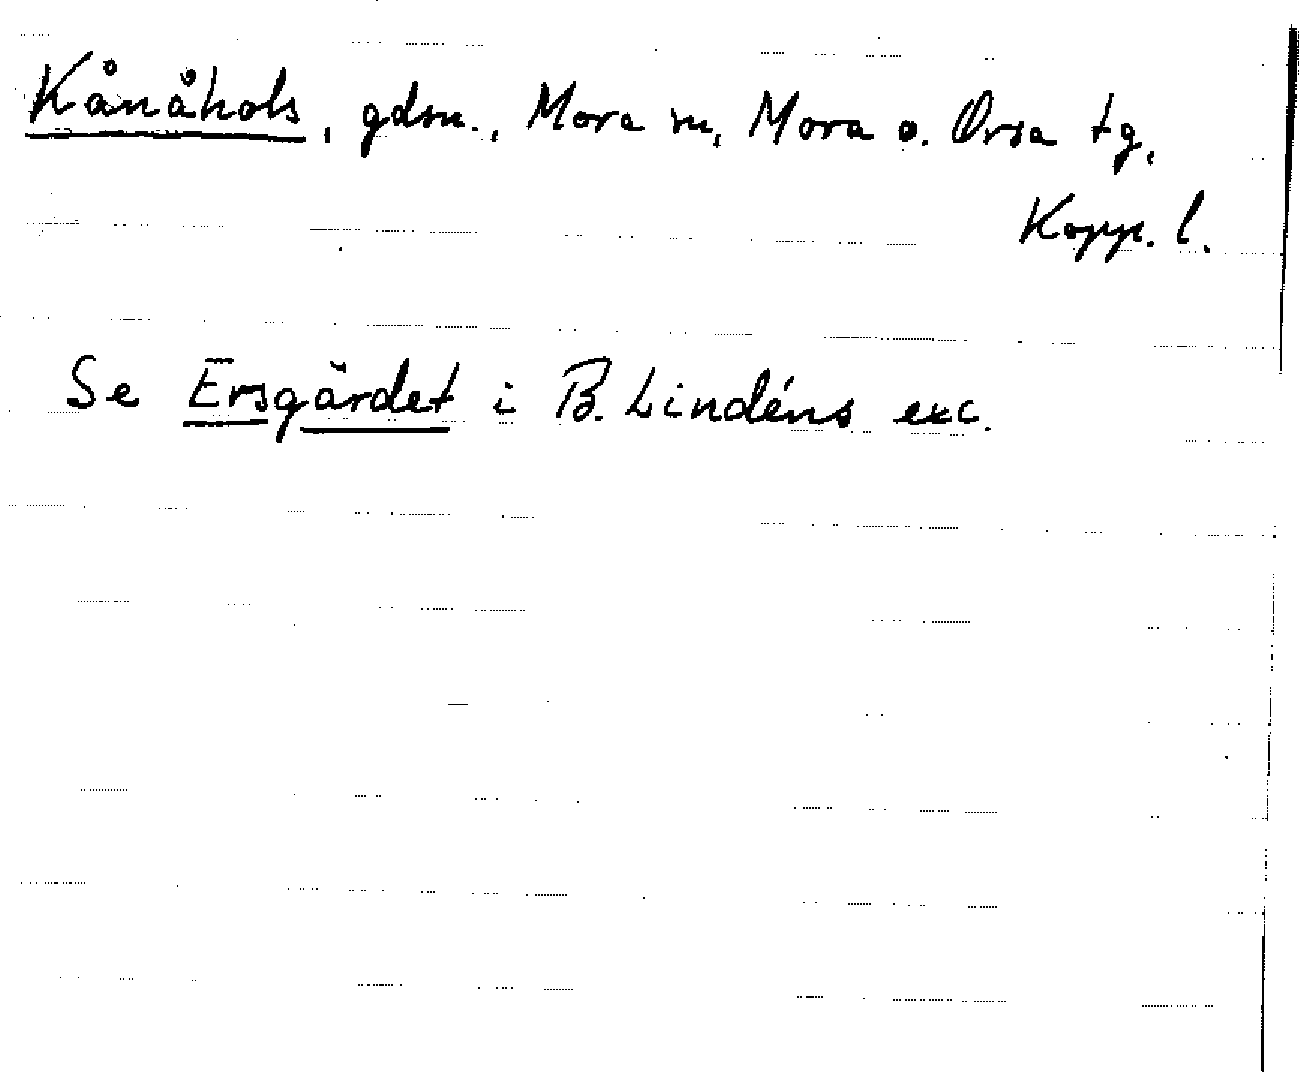 Kånåhols, gdsn., Mora sn, Mora o. Orsa tg,
Kopp. l.
Se Ersgärdet i B. Lindéns exc.